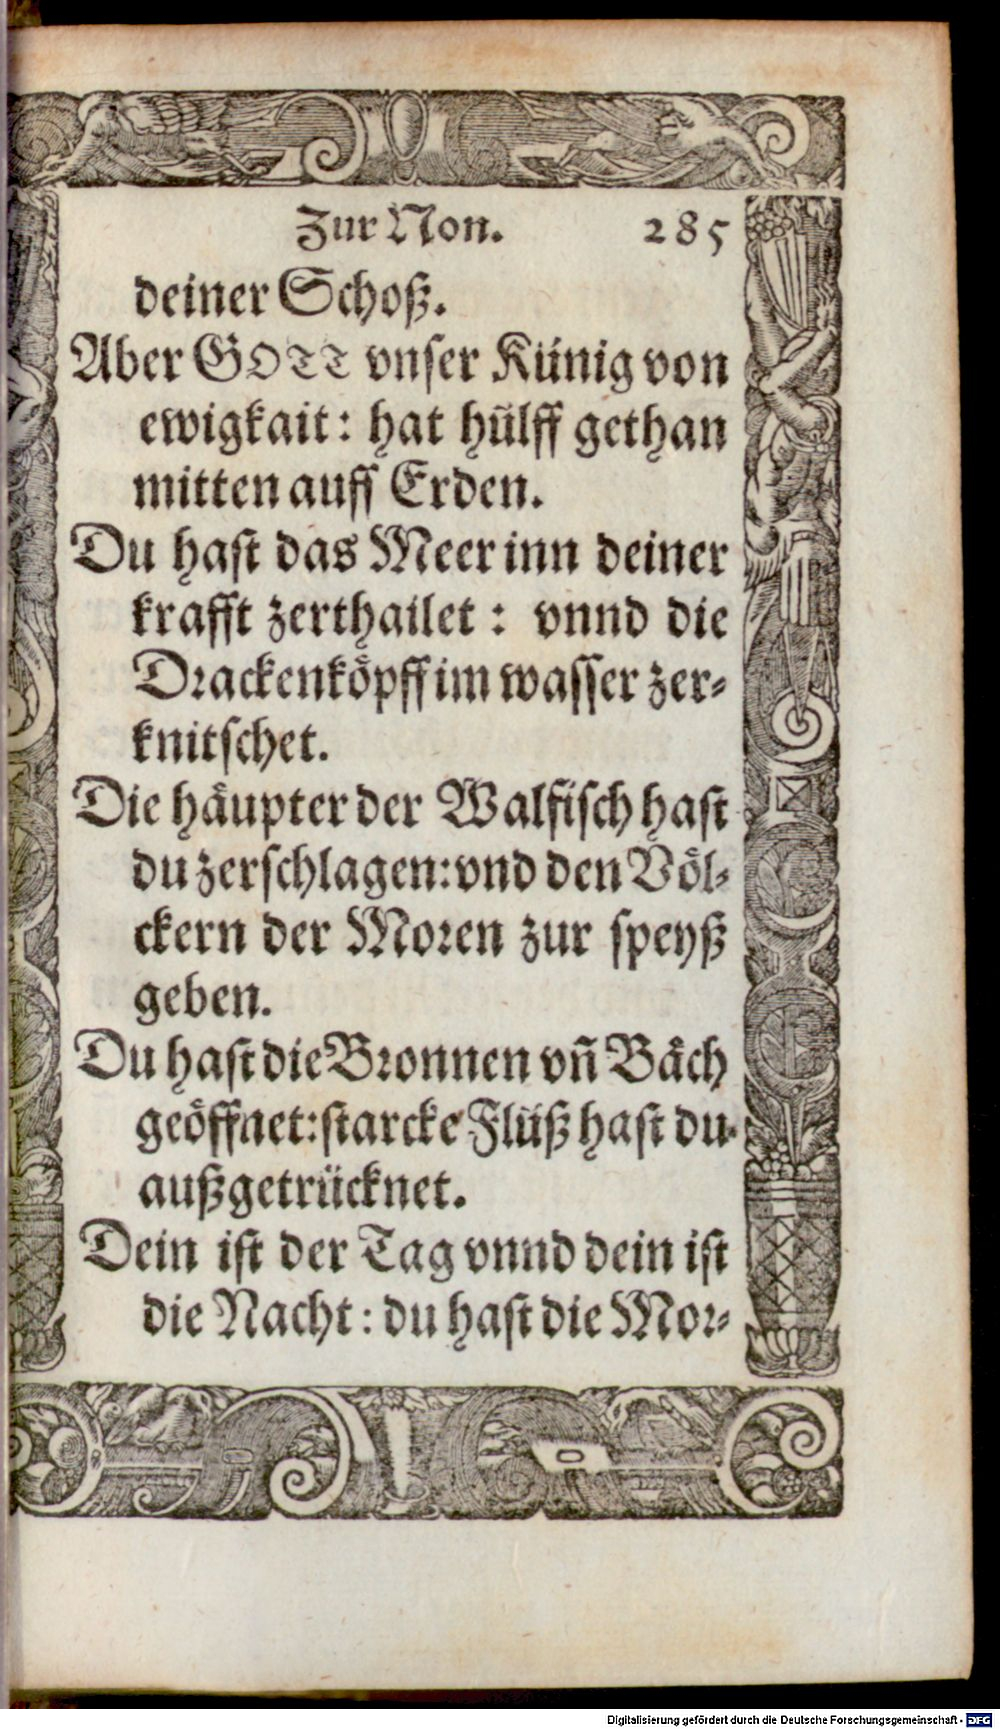 Zur Non. 285
deiner Schoß.
Aber GOTT vnser Künig von
ewigkait: hat hülff gethan
mitten auff Erden.
Du hast das Meer inn deiner
krafft zerthailet: vnnd die
Drackenköpff im wasser zer-
knitschet.
Die häupter der Walfisch hast
du zerschlagen: vnd den Völ-
ckern der Moren zur speyß
geben.
Du hast die Bronnen vñ Bäch
geöffnet: starcke Flüß hast du
außgetrücknet.
Dein ist der Tag vnnd dein ist
die Nacht: du hast die Mor-
Digitalisierung gefördert durch die Deutsche Forschungsgemeinschaft - DFG